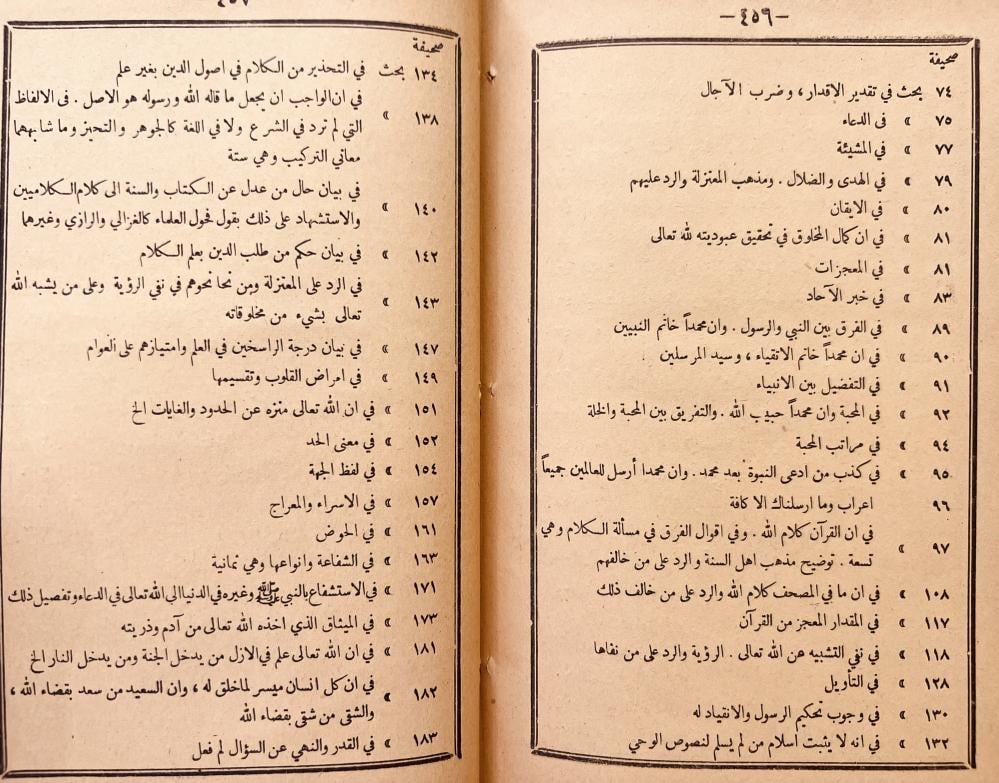 -٤٥٦-
صحيفة
٧٤ بحث في تقدير الاقدار، وضرب الآجال
٧٥ » فى الدعاء
٧٧ » في المشيئة
٧٩ » في الهدى والضلال . ومذهب المعتزلة والرد عليهم
٨٠ » في الايقان
٨١ » في ان كمال المخلوق في تحقيق عبوديته لله تعالى
٨١ » في المعجزات
٨٣ » في خبر الآحاد
٨٩ » في الفرق بين النبي والرسول . وان محمداً خاتم النبيين
٩٠ » في ان محمداً خاتم الاتقياء ، وسيد المرسلين
٩١ » في التفضيل بين الانبياء
٩٢ » في المحبة وان محمداً حبيب الله . والتفريق بين المحبة والخلة
٩٤ » في مراتب المحبة
٩٥ » في كذب من ادعى النبوة بعد محمد . وان محمدا أرسل للعالمين جميعاً
٩٦ اعراب وما ارسلناك الا كافة
في ان القرآن كلام الله . وفي اقوال الفرق في مسألة الكلام وهي
٩٧ » تسعة . توضيح مذهب اهل السنة والرد على من خالفهم
١٠٨ » في ان ما في المصحف كلام الله والرد على من خالف ذلك
١١٧ » في المقدار المعجز من القرآن
١١٨ » في نفي التشبيه عن الله تعالى . الرؤية والرد على من نفاها
١٢٨ » في التأويل
١٣٠ » في وجوب تحكيم الرسول والانقياد له
١٣٢ » في انه لا يثبت اسلام من لم يسلم لنصوص الوحي
٤٥٧
صحيفة
١٣٤ بحث في التحذير من الكلام في اصول الدين بغير علم
في ان الواجب ان يجعل ما قاله الله ورسوله هو الاصل . فى الالفاظ
١٣٨ » التي لم ترد في الشرع ولا في اللغة كالجوهر والتحيز وما شابهها
معاني التركيب وهي ستة
في بيان حال من عدل عن الكتاب والسنة الى كلام الكلاميين
١٤٠ » والاستشهاد على ذلك بقول فحول العلماء كالغزالي والرازي وغيرهما
١٤٢ » في بيان حكم من طلب الدين بعلم الكلام
في الرد على المعتزلة ومن نحا نحوهم في نفي الرؤية وعلى من يشبه الله
١٤٣ » تعالى بشيء من مخلوقاته
١٤٧ » في بيان درجة الراسخين في العلم وامتيازهم على العوام
١٤٩ » في امراض القلوب وتقسيمها
١٥١ » في ان الله تعالى منزه عن الحدود والغايات الخ
١٥٢ » في معنى الحد
١٥٤ » في لفظ الجهة
١٥٧ » في الاسراء والمعراج
١٦١ » في الحوض
١٦٣ » في الشفاعة وانواعها وهي ثمانية
١٧١ » في الاستشفاع بالنبي ﷺ وغيره في الدنيا الى الله تعالى في الدعاء وتفصيل ذلك
١٧٣ » في الميثاق الذي اخذه الله تعالى من آدم وذريته
١٨١ » في ان الله تعالى علم في الازل من يدخل الجنة ومن يدخل النار الخ
١٨٢ » في ان كل انسان ميسر لما خلق له ، وان السعيد من سعد بقضاء الله ،
والشقى من شقى بقضاء الله
١٨٣ » في القدر والنهي عن السؤال لم فعل